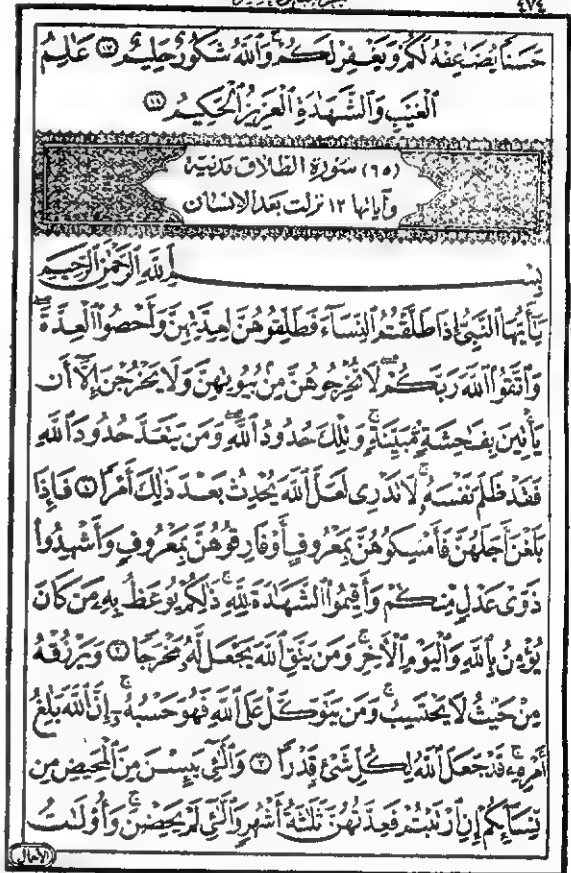 ٤٧٤
حَسَنًا يُضَٰعِفْهُ لَكُمْ وَيَغْفِرْ لَكُمْ ۚ وَٱللَّهُ شَكُورٌ حَلِيمٌ ﴿١٧﴾ عَٰلِمُ
ٱلْغَيْبِ وَٱلشَّهَٰدَةِ ٱلْعَزِيزُ ٱلْحَكِيمُ ﴿١٨﴾
(٦٥) سورة الطلاق مدنية
وآياتها ١٢ نزلت بعد الإنسان
بِسْمِ ٱللَّهِ ٱلرَّحْمَٰنِ ٱلرَّحِيمِ
يَٰٓأَيُّهَا ٱلنَّبِىُّ إِذَا طَلَّقْتُمُ ٱلنِّسَآءَ فَطَلِّقُوهُنَّ لِعِدَّتِهِنَّ وَأَحْصُوا۟ ٱلْعِدَّةَ ۖ
وَٱتَّقُوا۟ ٱللَّهَ رَبَّكُمْ ۖ لَا تُخْرِجُوهُنَّ مِنۢ بُيُوتِهِنَّ وَلَا يَخْرُجْنَ إِلَّآ أَن
يَأْتِينَ بِفَٰحِشَةٍ مُّبَيِّنَةٍ ۚ وَتِلْكَ حُدُودُ ٱللَّهِ ۚ وَمَن يَتَعَدَّ حُدُودَ ٱللَّهِ
فَقَدْ ظَلَمَ نَفْسَهُۥ ۚ لَا تَدْرِى لَعَلَّ ٱللَّهَ يُحْدِثُ بَعْدَ ذَٰلِكَ أَمْرًا ﴿١﴾ فَإِذَا
بَلَغْنَ أَجَلَهُنَّ فَأَمْسِكُوهُنَّ بِمَعْرُوفٍ أَوْ فَارِقُوهُنَّ بِمَعْرُوفٍ وَأَشْهِدُوا۟
ذَوَىْ عَدْلٍ مِّنكُمْ وَأَقِيمُوا۟ ٱلشَّهَٰدَةَ لِلَّهِ ۚ ذَٰلِكُمْ يُوعَظُ بِهِۦ مَن كَانَ
يُؤْمِنُ بِٱللَّهِ وَٱلْيَوْمِ ٱلْـَٔاخِرِ ۚ وَمَن يَتَّقِ ٱللَّهَ يَجْعَل لَّهُۥ مَخْرَجًا ﴿٢﴾ وَيَرْزُقْهُ
مِنْ حَيْثُ لَا يَحْتَسِبُ ۚ وَمَن يَتَوَكَّلْ عَلَى ٱللَّهِ فَهُوَ حَسْبُهُۥٓ ۚ إِنَّ ٱللَّهَ بَٰلِغُ
أَمْرِهِۦ ۚ قَدْ جَعَلَ ٱللَّهُ لِكُلِّ شَىْءٍ قَدْرًا ﴿٣﴾ وَٱلَّٰٓـِٔى يَئِسْنَ مِنَ ٱلْمَحِيضِ مِن
نِّسَآئِكُمْ إِنِ ٱرْتَبْتُمْ فَعِدَّتُهُنَّ ثَلَٰثَةُ أَشْهُرٍ وَٱلَّٰٓـِٔى لَمْ يَحِضْنَ ۚ وَأُو۟لَٰتُ
الأحمال